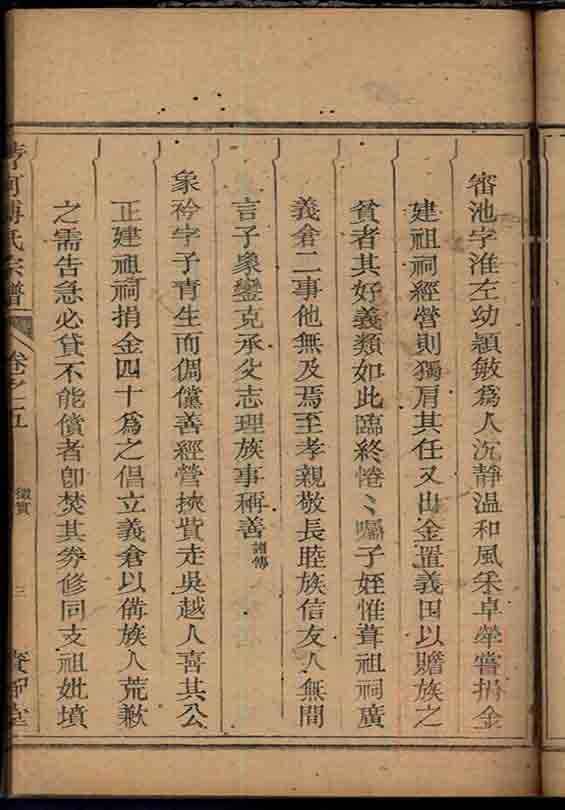 審池字淮左幼穎敏爲人沉靜溫和風采卓犖嘗捐金
建祖祠經營則獨肩其任又出金置義田以贍族之
貧者其好義類如此臨終惓〻囑子姪惟葺祖祠廣
義倉二事他無及焉至孝親敬長睦族信友人無間
言子象鑾克承父志理族事稱善 譜傳
象衿字子青生而倜儻善經營挾貲走吳越人喜其公
正建祖祠捐金四十爲之倡立義倉以備族人荒歉
之需告急必貸不能償者卽焚其券修同支祖妣墳
河傅氏宗譜 卷之五 徵實 三 堂